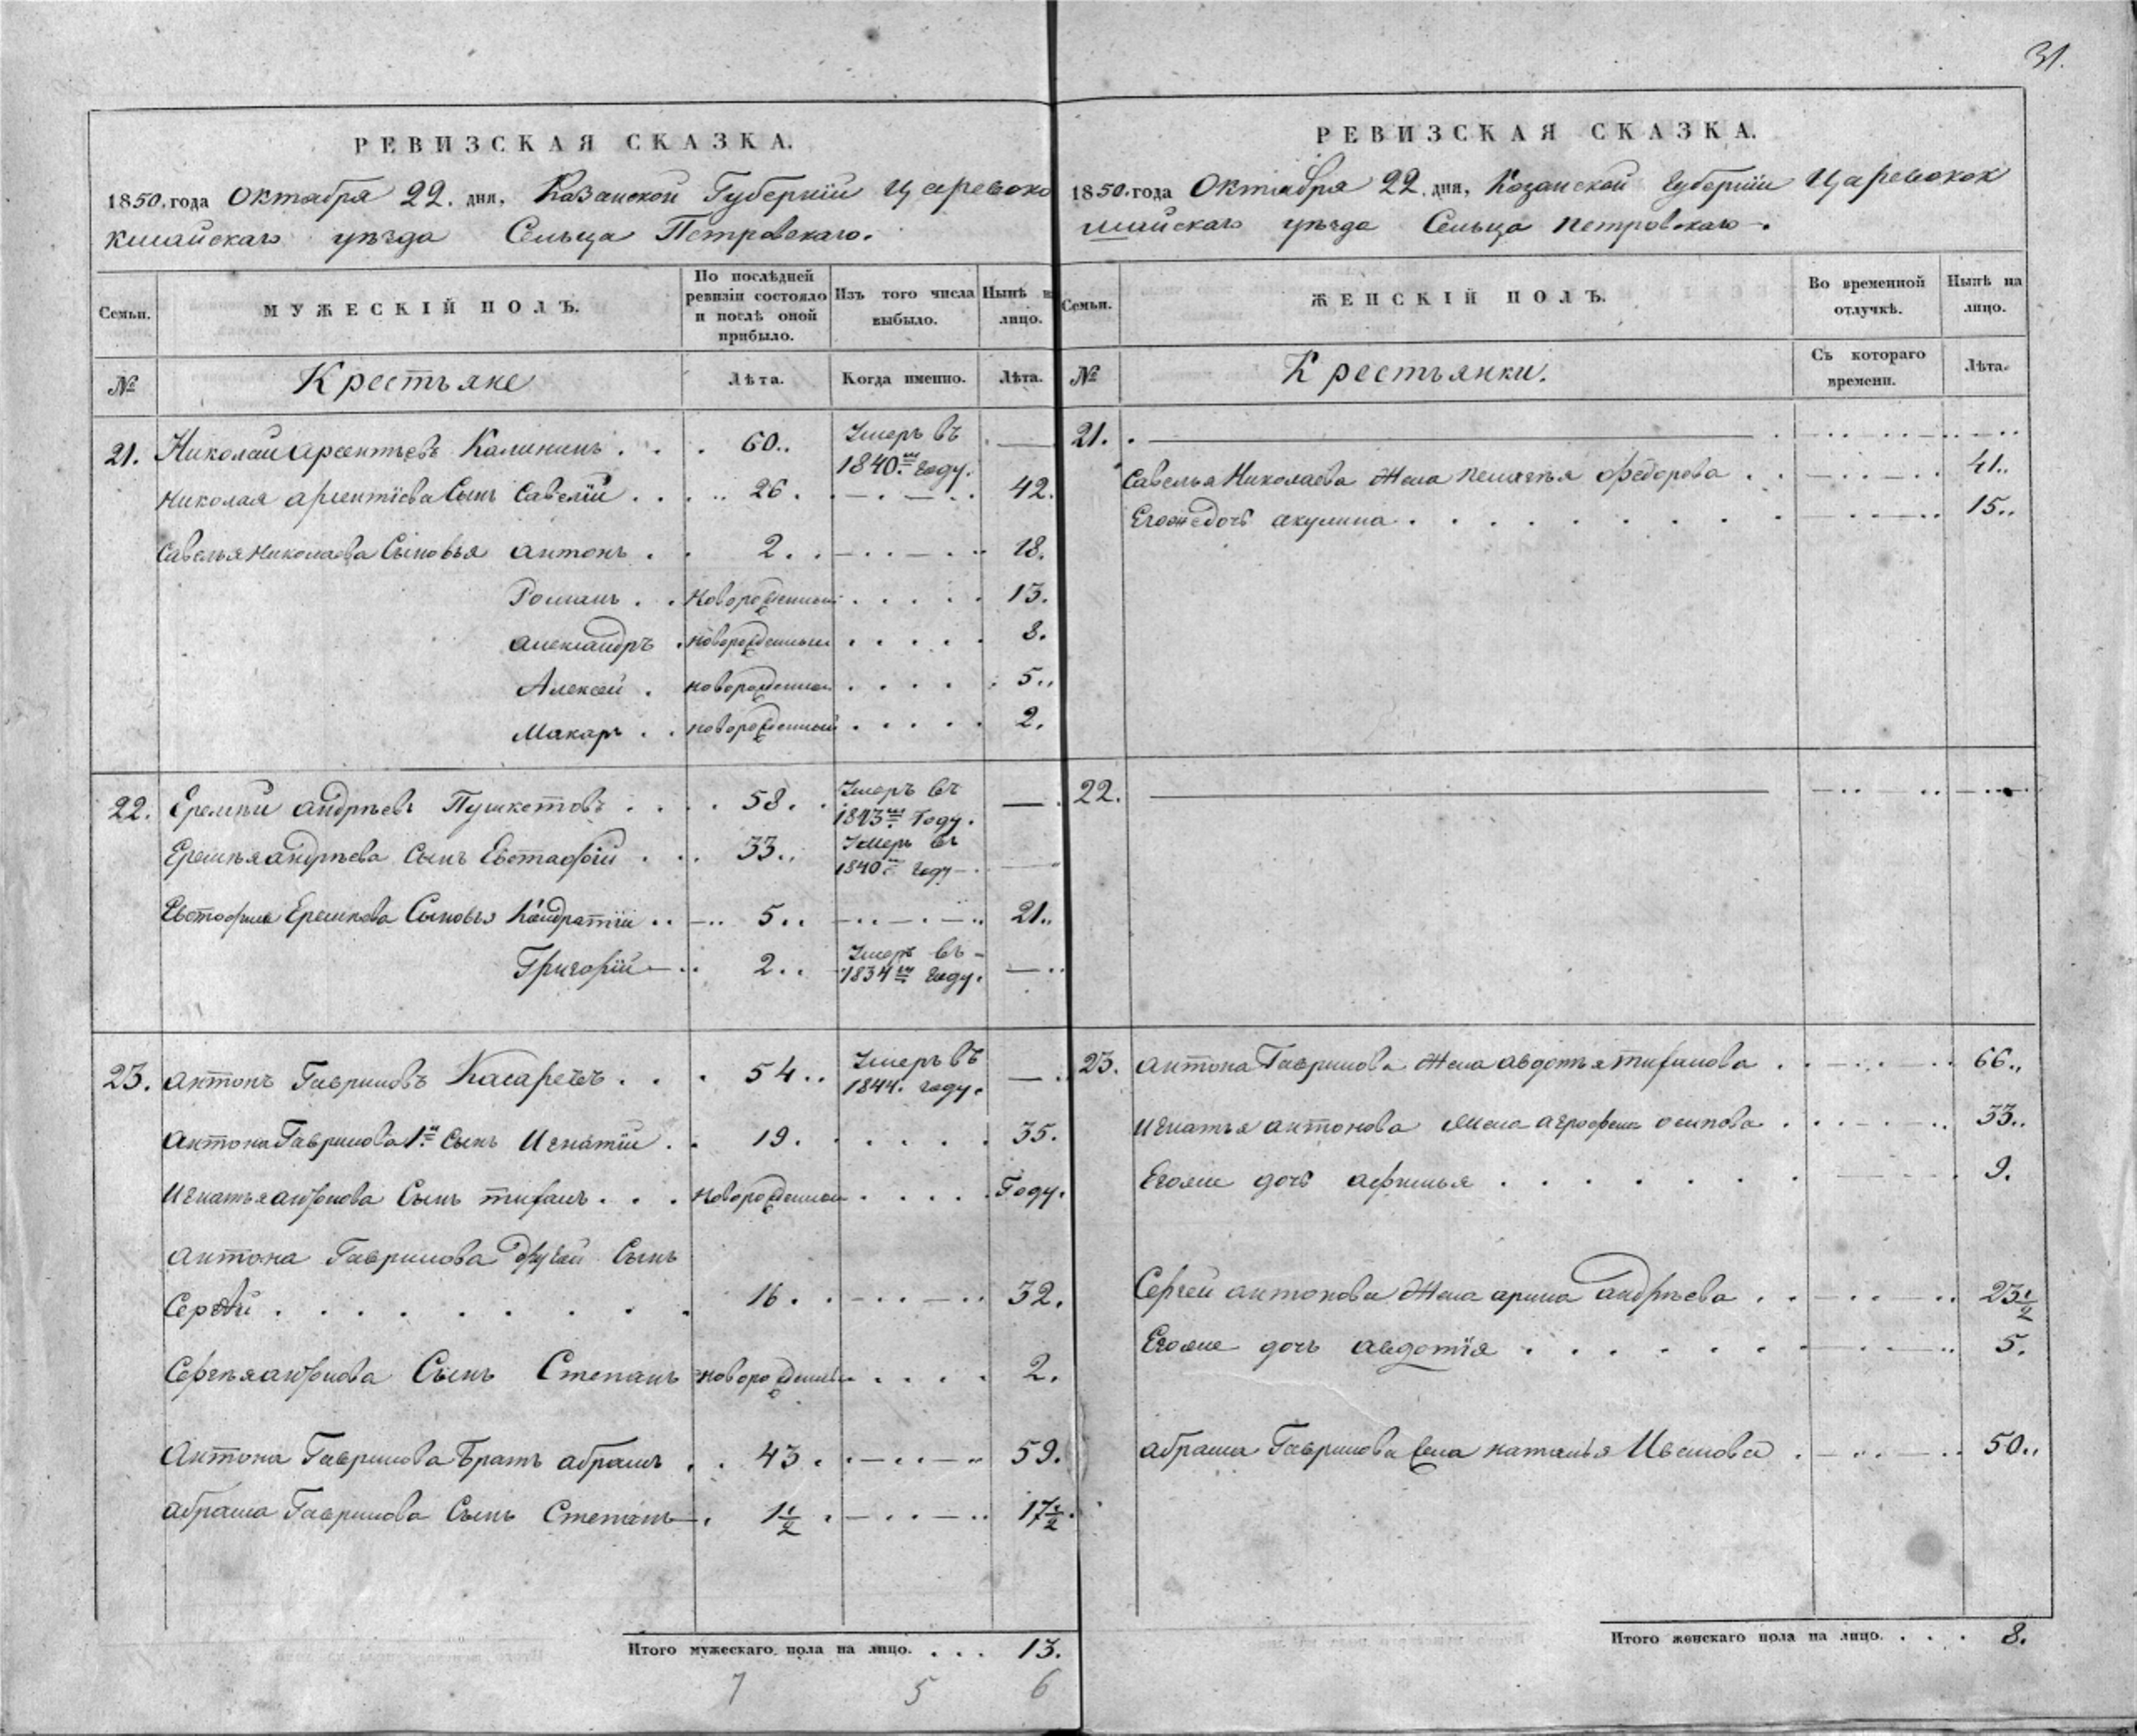 31.
РЕВИЗСКАЯ СКАЗКА.
1850. года Октября 22. дня, Казанской Губерніи Царевоко
кшайскаго уѣзда Сельца Петровскаго.
Семьи. МУЖЕСКІЙ ПОЛЪ. По послѣдней ревизіи состояло и послѣ оной прибыло. Изъ того числа выбыло. Нынѣ на лицо.
№ Крестьяне Лѣта. Когда именно. Лѣта.
21. Николай Арсентьевъ Калининъ . . . 60.. Умеръ въ 1840.м году. —
Николая Арсентіева Сынъ Савелій . . . 26. 42.
Савелья Николаева Сыновья Антонъ . . 2. 18.
Романъ . . Новорожденный 13.
Александръ . новорожденный 8.
Алексей . новорожденной 5..
Макаръ . . новорожденный 2.
22. Еремѣй Андрѣевъ Пушкетовъ . . . 58. Умеръ въ 1843м Году. —
Еремѣя Андрѣева Сынъ Евстафій . . 33.. Умеръ въ 1840м Году —
Евстафия Еремѣева Сыновья Кандратій . . 5.. 21..
Григорій — 2.. Умеръ въ 1834м Году. —
23. Антонъ Гавриловъ . . . 54.. Умеръ въ 1844. году. —
Антона Гаврилова 1й Сынъ Игнатій . . 19. 35.
Игнатья Антонова Сынъ Тифанъ . . . Новорожденной Году.
Антона Гаврилова другой Сынъ
Сергѣй . . . . . . . . . 16. 32.
Сергѣя Антонова Сынъ Степанъ новорожденный 2.
Антона Гаврилова Братъ Абрамъ . . 43. 59.
Абрама Гаврилова Сынъ Степанъ — 1 1/2 17 1/2
Итого мужескаго пола на лицо. . . . 13.
7 5 6
РЕВИЗСКАЯ СКАЗКА.
1850. года Октября 22. дня, Казанской Губерніи Царевокок
шайскаго уѣзда Сельца Петровскаго.
Семьи. ЖЕНСКІЙ ПОЛЪ. Во временной отлучкѣ. Нынѣ на лицо.
№ Крестьянки. Съ котораго времени. Лѣта.
21.
Савелья Николаева Жена Пелагѣя Федорова . . 41..
Егоже дочь Акулина . . . . . . . . 15..
22.
23. Антона Гаврилова Жена Авдотья Тифанова . 66..
Игнатья Антонова Жена Аграфена Осипова . 33..
Егоже дочь Афимья . . . . . . . 9.
Сергей Антонова Жена Арина Андрѣева . . 23 1/2
Егоже дочь Авдотія . . . . . . . 5.
Абрама Гаврилова Жена Наталья Иванова . 50..
Итого женскаго пола на лицо. . . . 8.